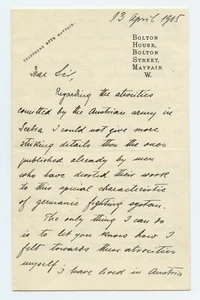 13 April 1915
TELEPHONE MAYFAIR.
BOLTON
HOUSE,
BOLTON
STREET,
MAYFAIR
W.
Dear Sir,
Regarding the atrocities
comitted by the Austrian army in
Serbia I could not give more
striking details then the ones
published already by men
who have devoted their works
to this special characteristic
of germanic fighting system.
The only thing I can do
is to let you know how I
felt towards these atrocities
myself. I have lived in Austria